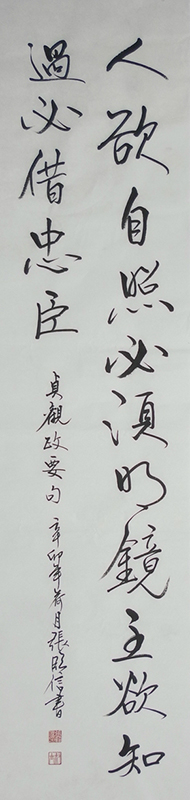 人欲自照必須明鏡主欲知
過必借忠臣
貞觀政要句 辛卯年荷月張昭信書